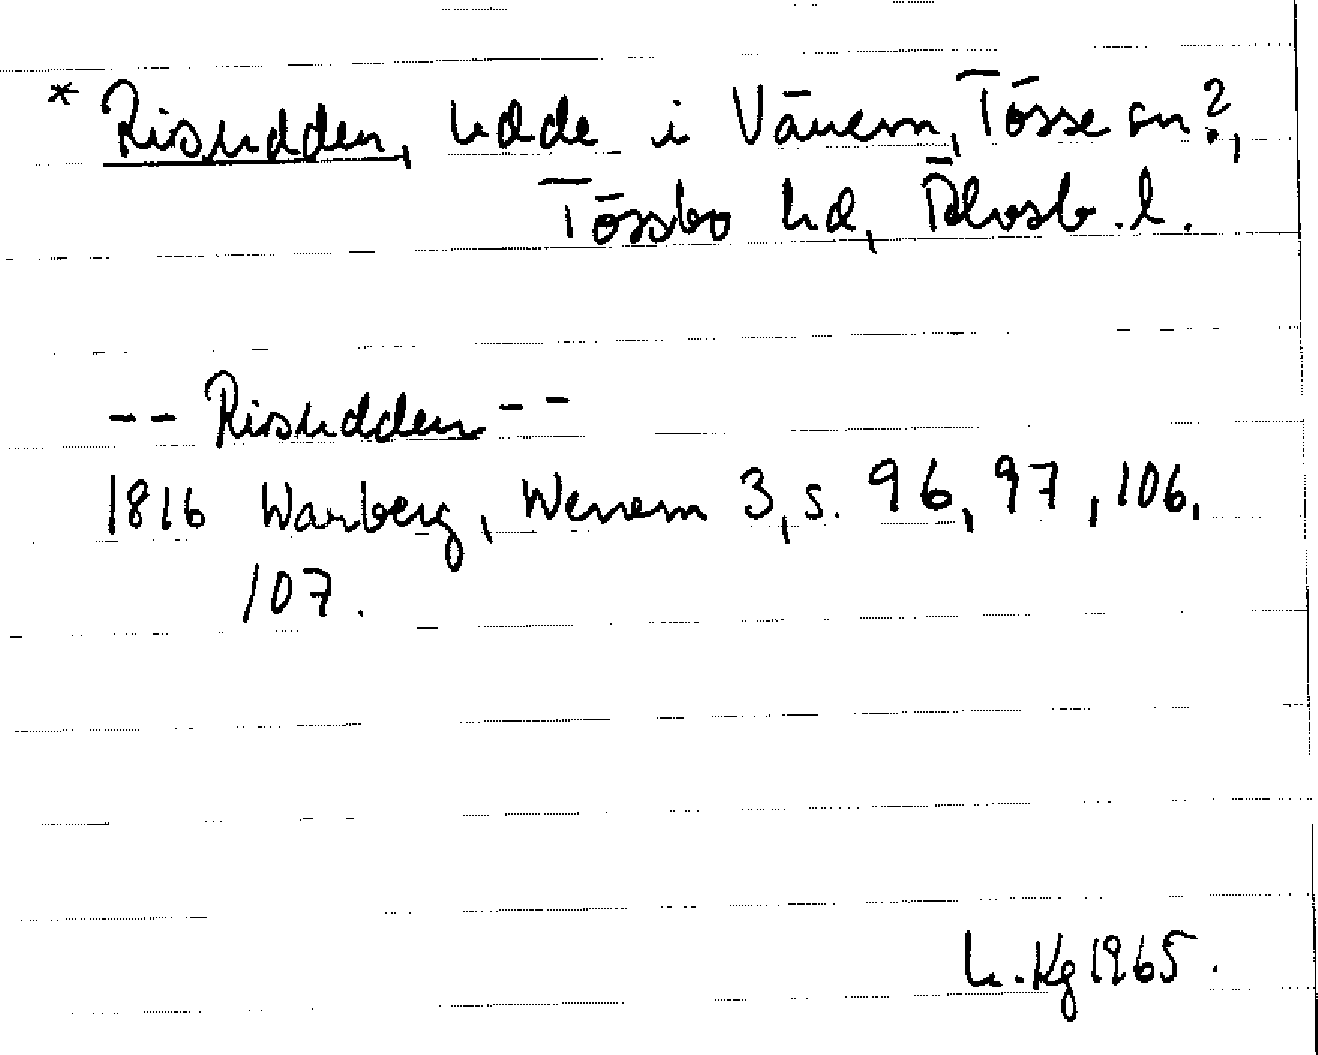 * Risudden, udde i Vänern, Tösse sn?,
Tössbo hd, Älvsb. l.
-- Risudden --
1816 Warberg, Wenern 3, s. 96, 97, 106,
107.
h. Kg 1965.